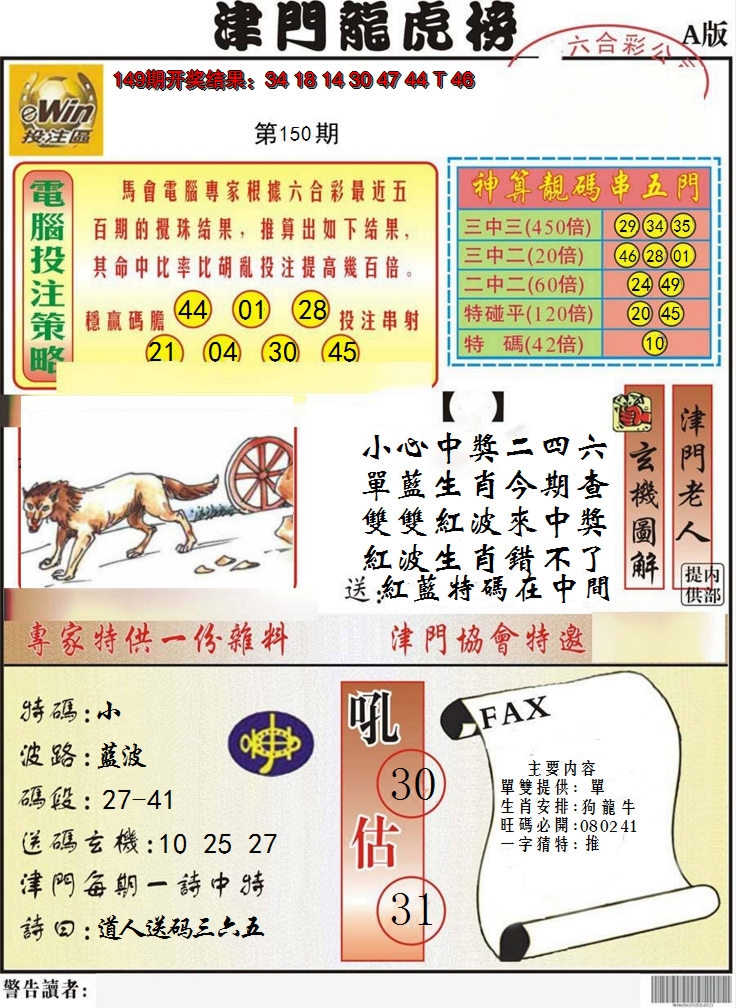 津門龍虎榜
六合彩公司
A版
149期开奖结果：34 18 14 30 47 44 T 46
eWin
投注區
第150期
電腦投注策略
馬會電腦專家根據六合彩最近五
百期的攪珠结果，推算出如下结果，
其命中比率比胡亂投注提高幾百倍。
穩贏碼膽 44 01 28 投注串射
21 04 30 45
神算靚碼串五門
三中三(450倍) 29 34 35
三中二(20倍) 46 28 01
二中二(60倍) 24 49
特碰平(120倍) 20 45
特 碼(42倍) 10
【 】
小心中獎二四六
單藍生肖今期查
雙雙紅波來中獎
紅波生肖錯不了
送:紅藍特碼在中間
玄機圖解
津門老人
内部提供
專家特供一份雜料
津門協會特邀
特碼:小
波路:藍波
碼段:27-41
送碼玄機:10 25 27
津門每期一詩中特
詩曰:道人送码三六五
吼
30
估
31
FAX
主要内容
單雙提供：單
生肖安排:狗龍牛
旺碼必開:080241
一字猜特：推
警告讀者：